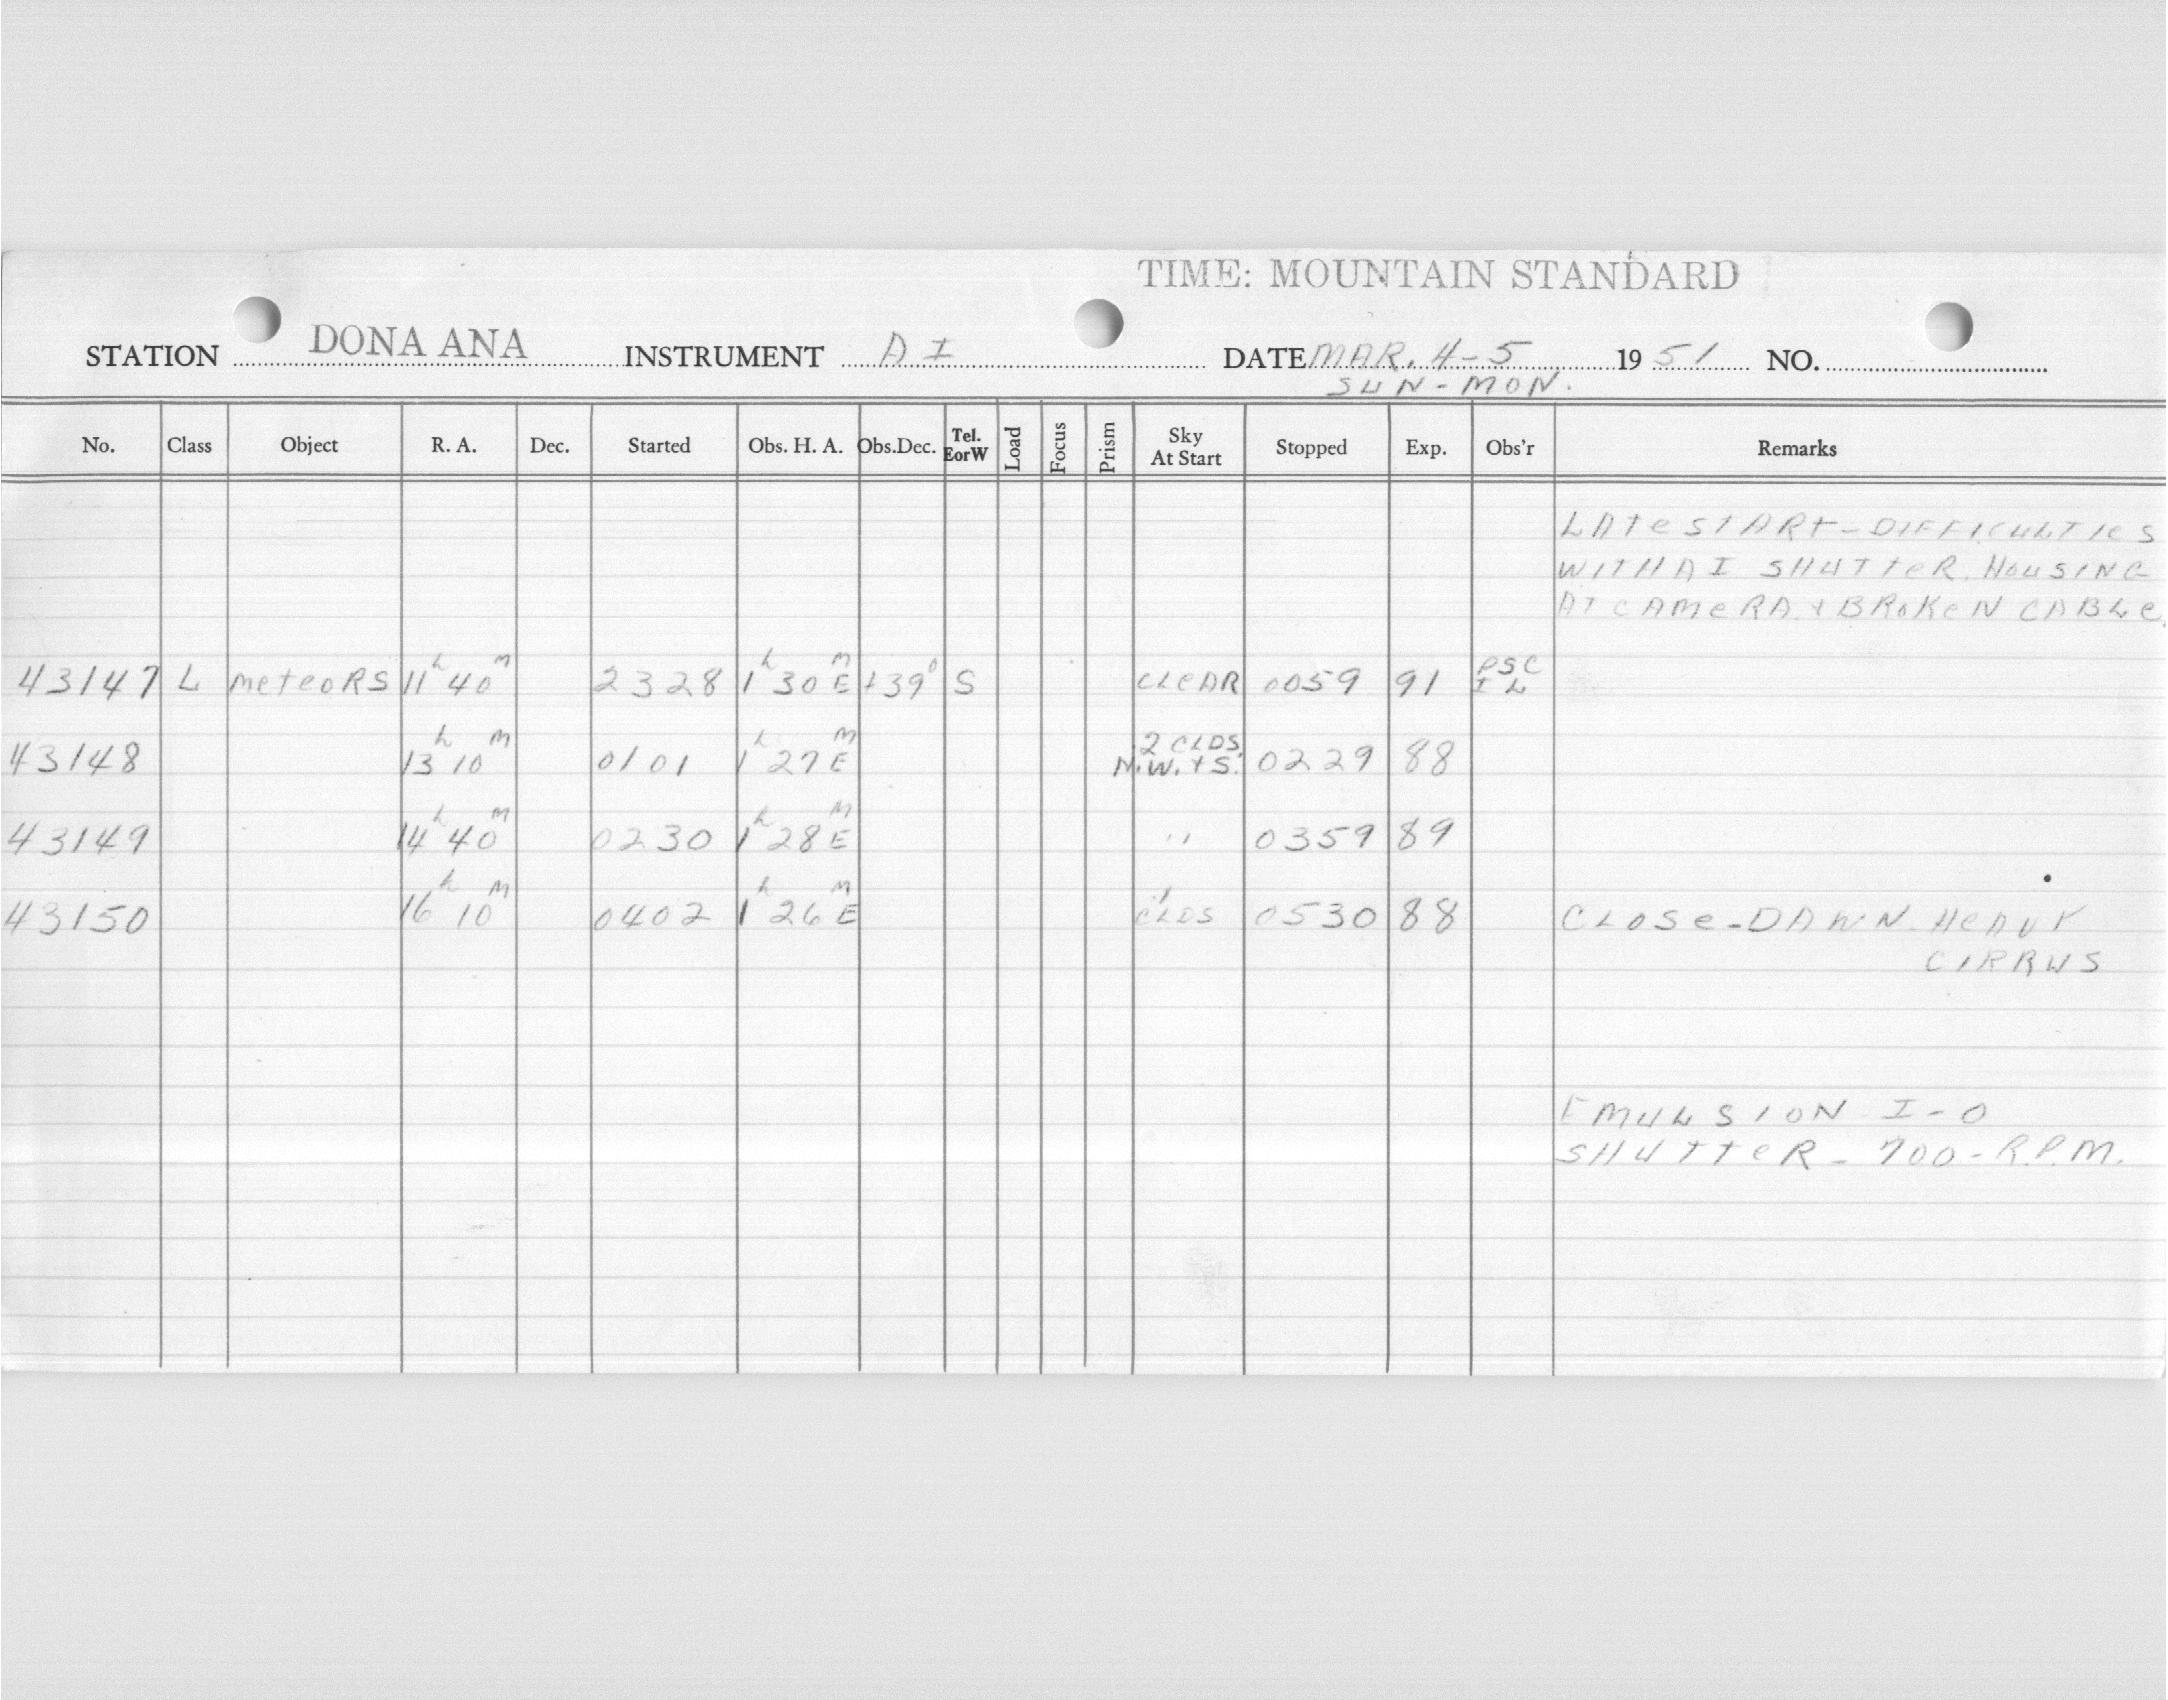 TIME: MOUNTAIN STANDARD
STATION DONA ANA INSTRUMENT A I DATE MAR. 4-5 1951 NO.
SUN-MON.
No. Class Object R. A. Dec. Started Obs. H. A. Obs.Dec. Tel. EorW Load Focus Prism Sky At Start Stopped Exp. Obs'r Remarks
LATE START - DIFFICULTIES
WITH A I SHUTTER HOUSING
AT CAMERA + BROKEN CABLE.
43147 L METEORS 11h 40m 2328 1h 30m E +39° S CLEAR 0059 91 PSC IL
43148 13h 10m 0101 1h 27m E 2 CLDS. N.W. + S. 0229 88
43149 14h 40m 0230 1h 28m E " 0359 89
43150 16h 10m 0402 1h 26m E CLDS 0530 88 CLOSE - DAWN. HEAVY
CIRRUS
EMULSION I-O
SHUTTER - 700 - R.P.M.